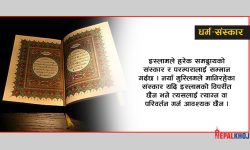 धर्म-संस्कार
इस्लामले हरेक समुदायको
संस्कार र परम्परालाई सम्मान
गर्दछ । नयाँ मुस्लिमले मानिरहेका
संस्कार यदि इस्लामको विपरीत
छैन भने त्यसलाई त्याग्न वा
परिवर्तन गर्न आवश्यक छैन ।
NEPALKHOJ